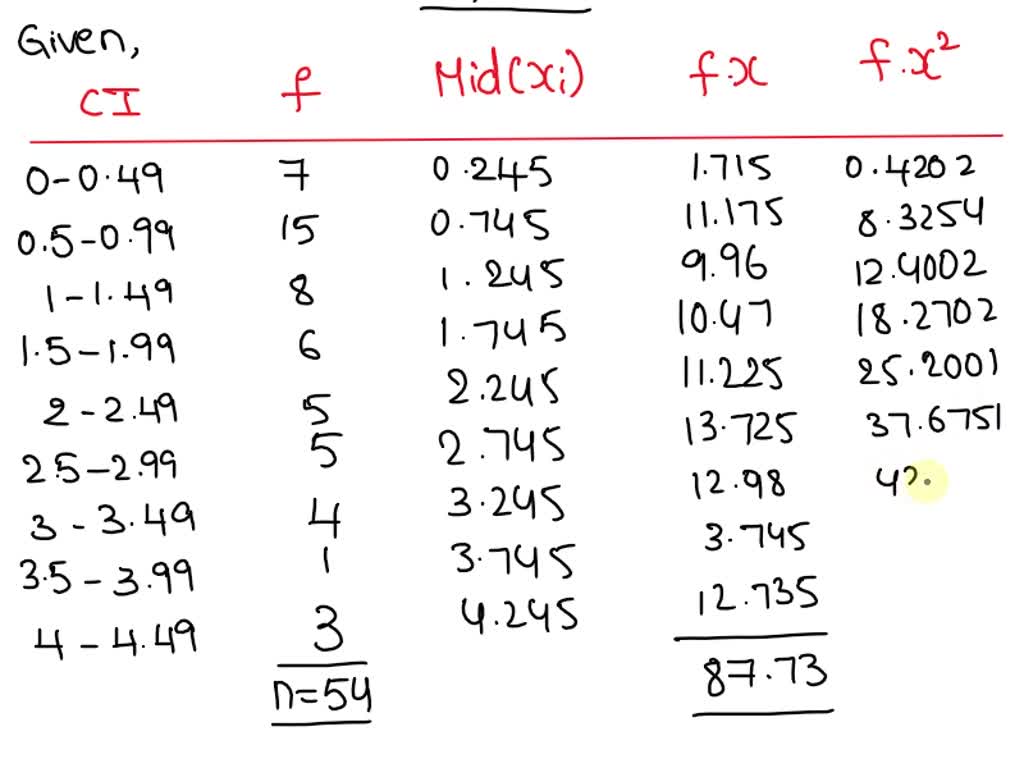 Given,
CI f Mid(xi) f.x f.x²
0-0.49 7 0.245 1.715 0.4202
0.5-0.99 15 0.745 11.175 8.3254
1-1.49 8 1.245 9.96 12.4002
1.5-1.99 6 1.745 10.47 18.2702
2-2.49 5 2.245 11.225 25.2001
2.5-2.99 5 2.745 13.725 37.6751
3-3.49 4 3.245 12.98 42.
3.5-3.99 1 3.745 3.745
4-4.49 3 4.245 12.735
n=54 87.73